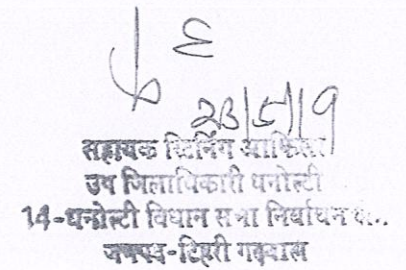 23/5/19
सहायक रिटर्निंग आफिसर
उप जिलाधिकारी धनोल्टी
14-धनोल्टी विधान सभा निर्वाचन
जनपद-टिहरी गढ़वाल